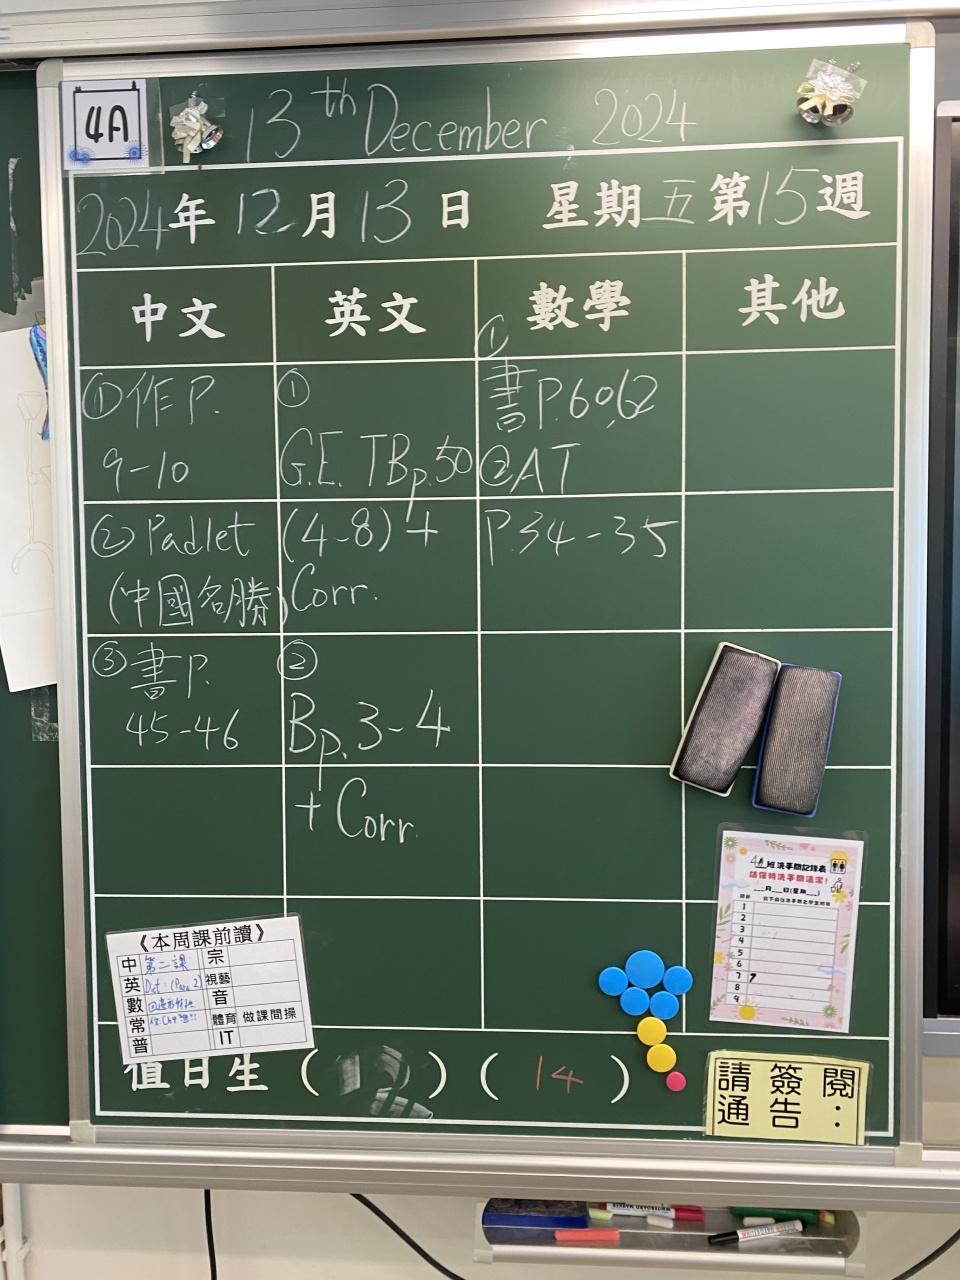 4A
13th December, 2024
2024年12月13日 星期五第15週
中文
英文
數學
其他
①作P.
9-10
②Padlet
(中國名勝)
③書P.
45-46
①
G.E. TBp.50
(4-8)+
Corr.
②
Bp.3-4
+Corr.
①
書P.60,62
②AT
P.34-35
《本周課前讀》
中 第二課 宗
英 視藝
數 音
常 體育 做課間操
普 IT
4A班洗手間記錄表
請保持洗手間清潔!
月 日(星期 )
1
2
3
4
5
6
7
8
9
值日生( )(14)
請簽閱
通告: